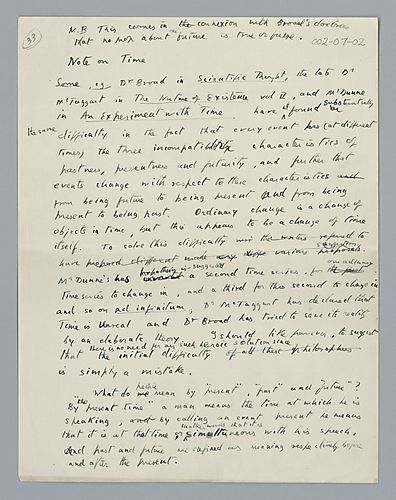 33
N.B This comes in the connexion with Broad's doctrine
that no propn about the future is true or false.
002-07-02
Note on Time
Some, eg Dr Broad in Scientific Thought, the late Dr
McTaggart in The Nature of Existence vol ii, and Mr Dunne
in An Experiment with Time have found substantially
the same
difficulty in the fact that every event has (at different
times) the three incompatible characteristics of
pastness, presentness and futurity, and further that
events change with respect to these characteristics
from being future to being present and from being
present to being past. Ordinary change is a change of
objects in time, but this appears to be a change of time
itself. To solve this difficulty the writers referred to
have prepared different made various suggestions
Mr Dunne's has hypothesis is a second time series, for
Time series to change in, and a third for this second to change in
and so on ad infinitum, Dr McTaggart has declared that
Time is Unreal and Dr Broad has tried to save its reality
by an elaborate theory. I should like, however, to suggest
there is no need for any such heroic solution since
that the initial difficulty of all these philosophers
is simply a mistake.
What do people we mean by "present", "past" and "future"?
By "the present time" a man means the time at which he is
speaking, and by calling an event present he means
that it is at that time simultaneous with his speech,
And past and future are defined as meaning respectively before
and after the present.